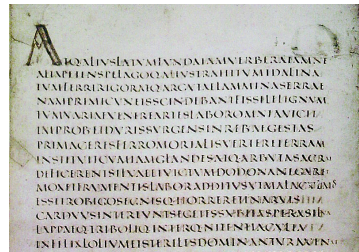 ATQ·ALIVSLATVMFVNDAIAMVERBERATAMNE
ALTAPETENSPELAGOQ·ALIVSTRAHITVMIDALINA
TVMFERRIRIGORATQ·ARGVTAELAMMINASERRAE
NAMPRIMICVNEISSCINDEBANTFISSILELIGNVM
TVMVARIAEVENEREARTESLABOROMNIAVICIT
IMPROBVSETDVRISVRGENSINREBVSEGESTAS
PRIMACERESFERROMORTALISVERTERETERRAM
INSTITVITCVMIAMGLANDESATQ·ARBVTASACRAE
DEFICERENTSILVAEETVICTVMDODONANEGARET
MOXETFRVMENTISLABORADDITVSVTMALACVLMOS
ESSETROBIGOSEGNISQ·HORRERETINARVIS
CARDVVSINTEREVNTSEGETESSVBITASPERASILVA
LAPPAEQ·TRIBOLIQ·INTERQ·NITENTIACVLTA
INFELIXLOLIVMETSTERILESDOMINANTVRAVENAE